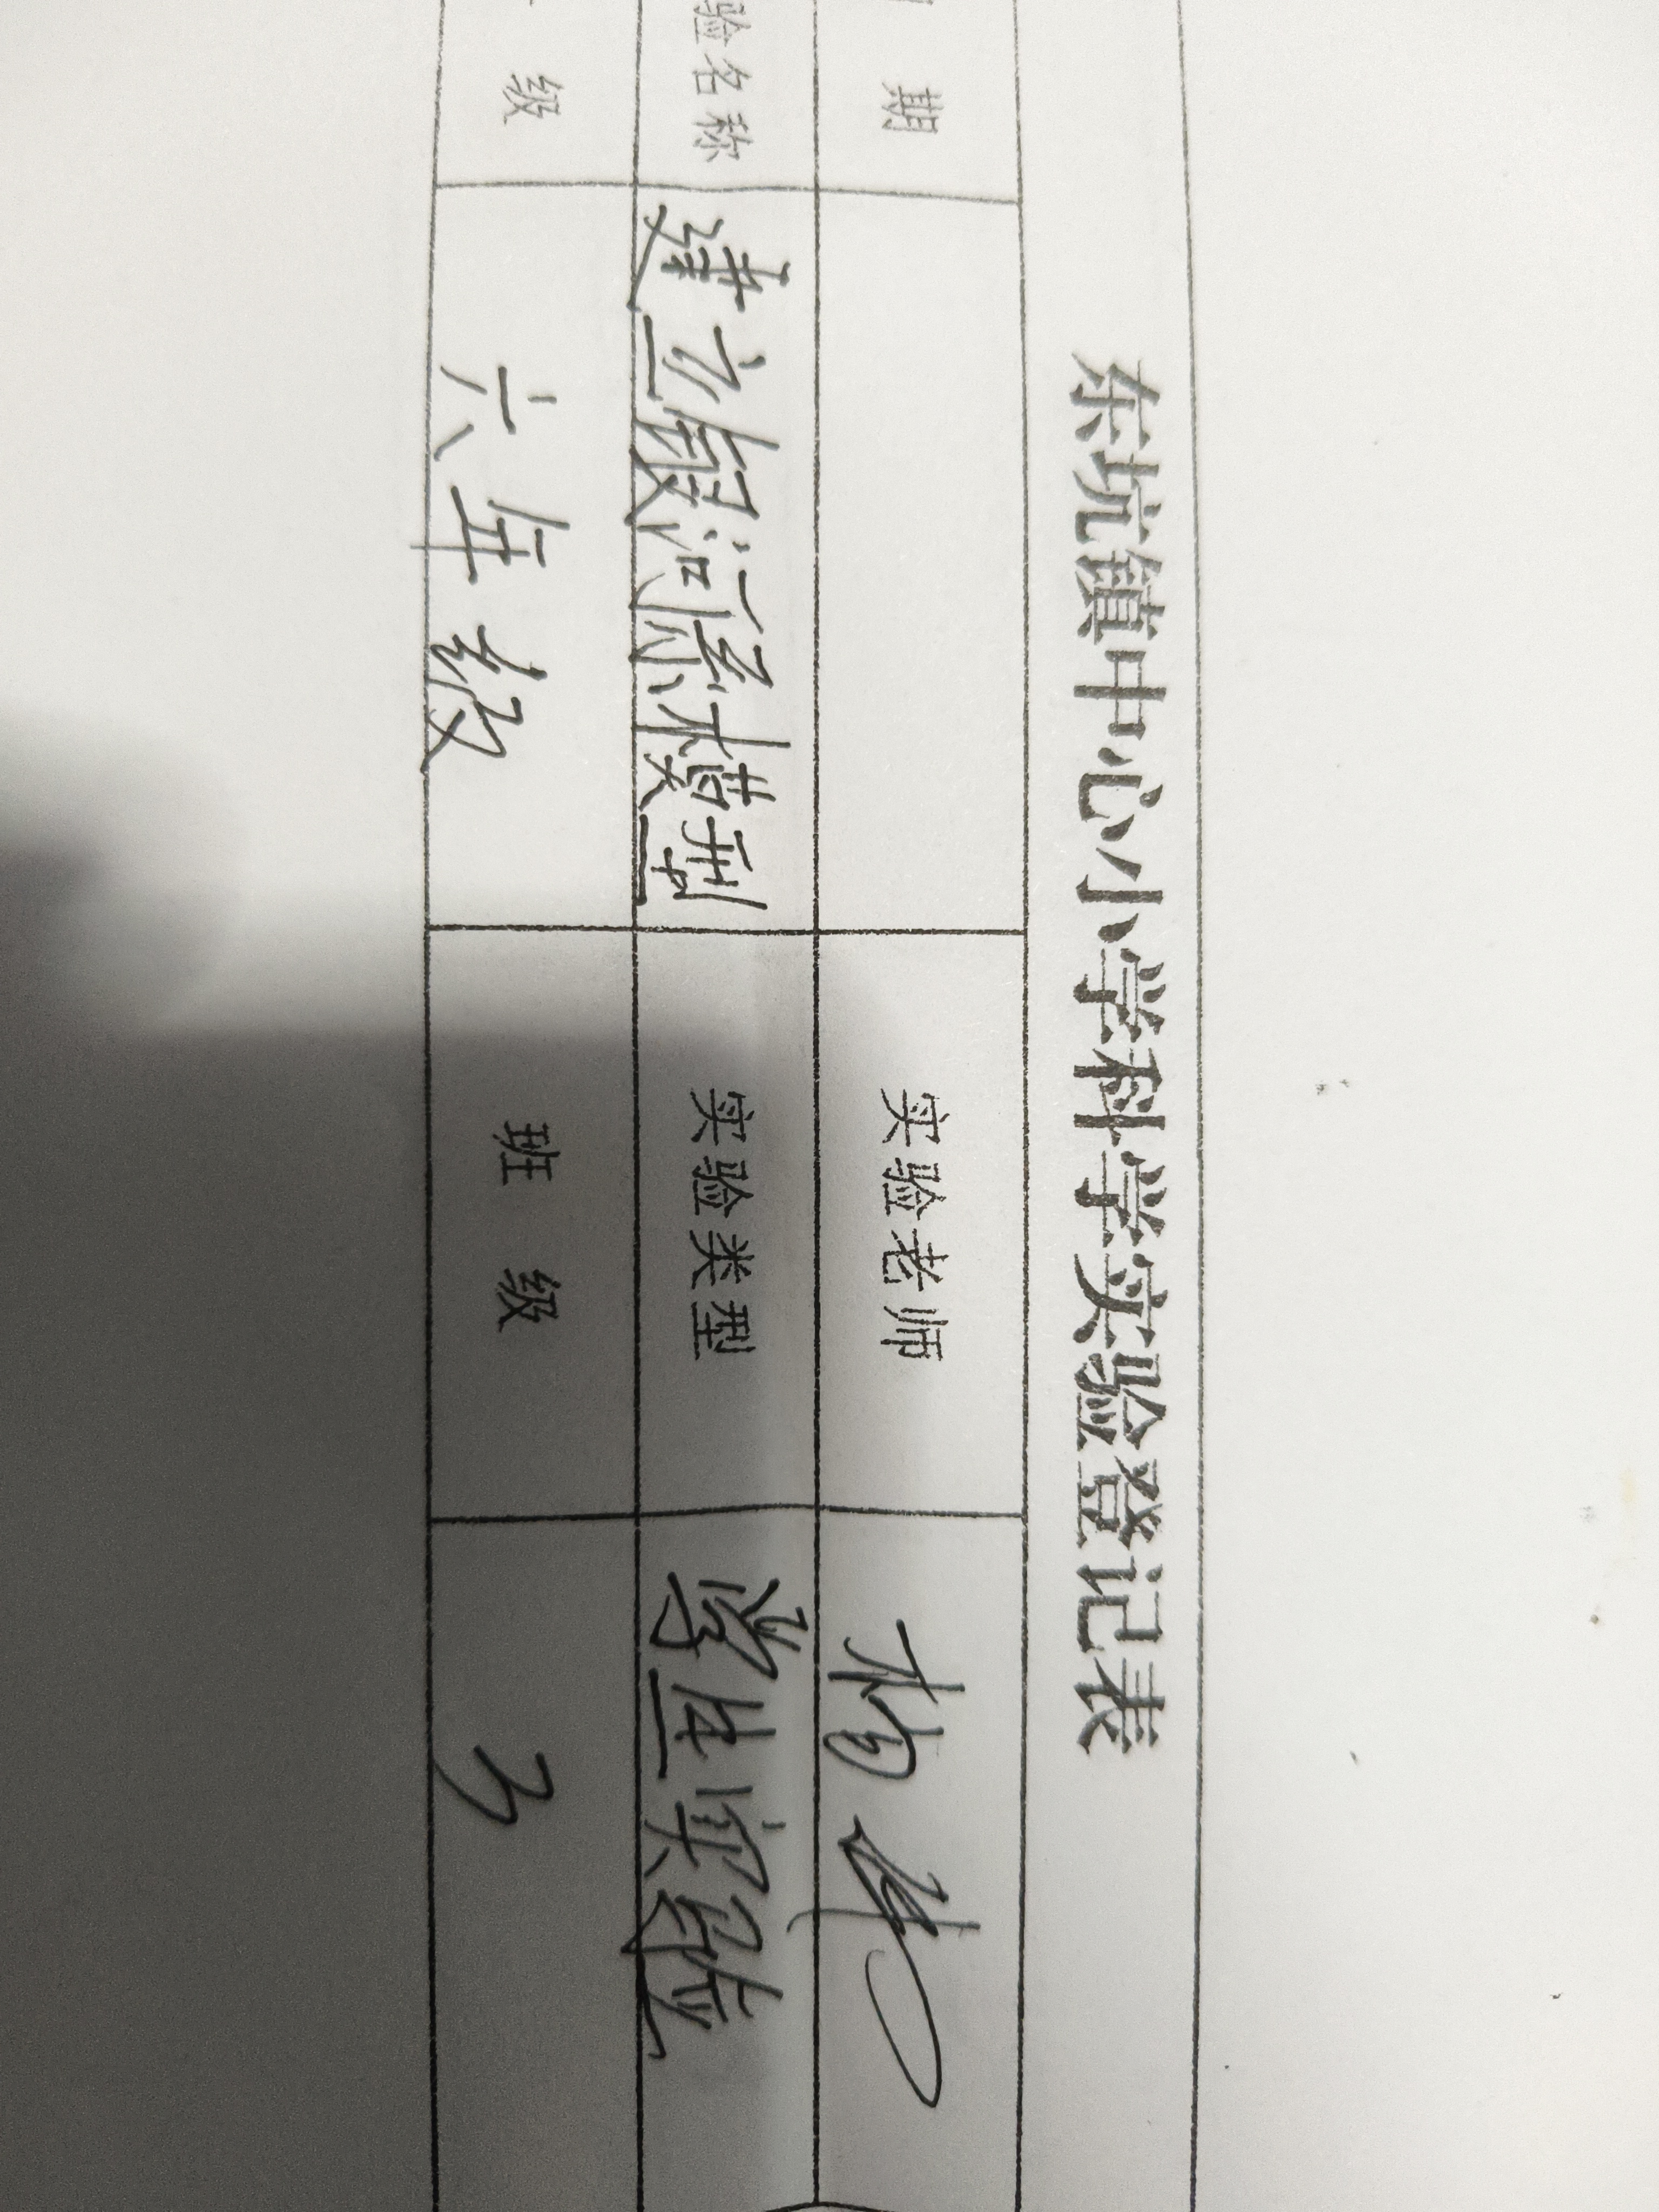 东坑镇中心小学科学实验登记表
期 实验老师 杨
验名称 建立银河系模型 实验类型 学生实验
级 六年级 班级 3